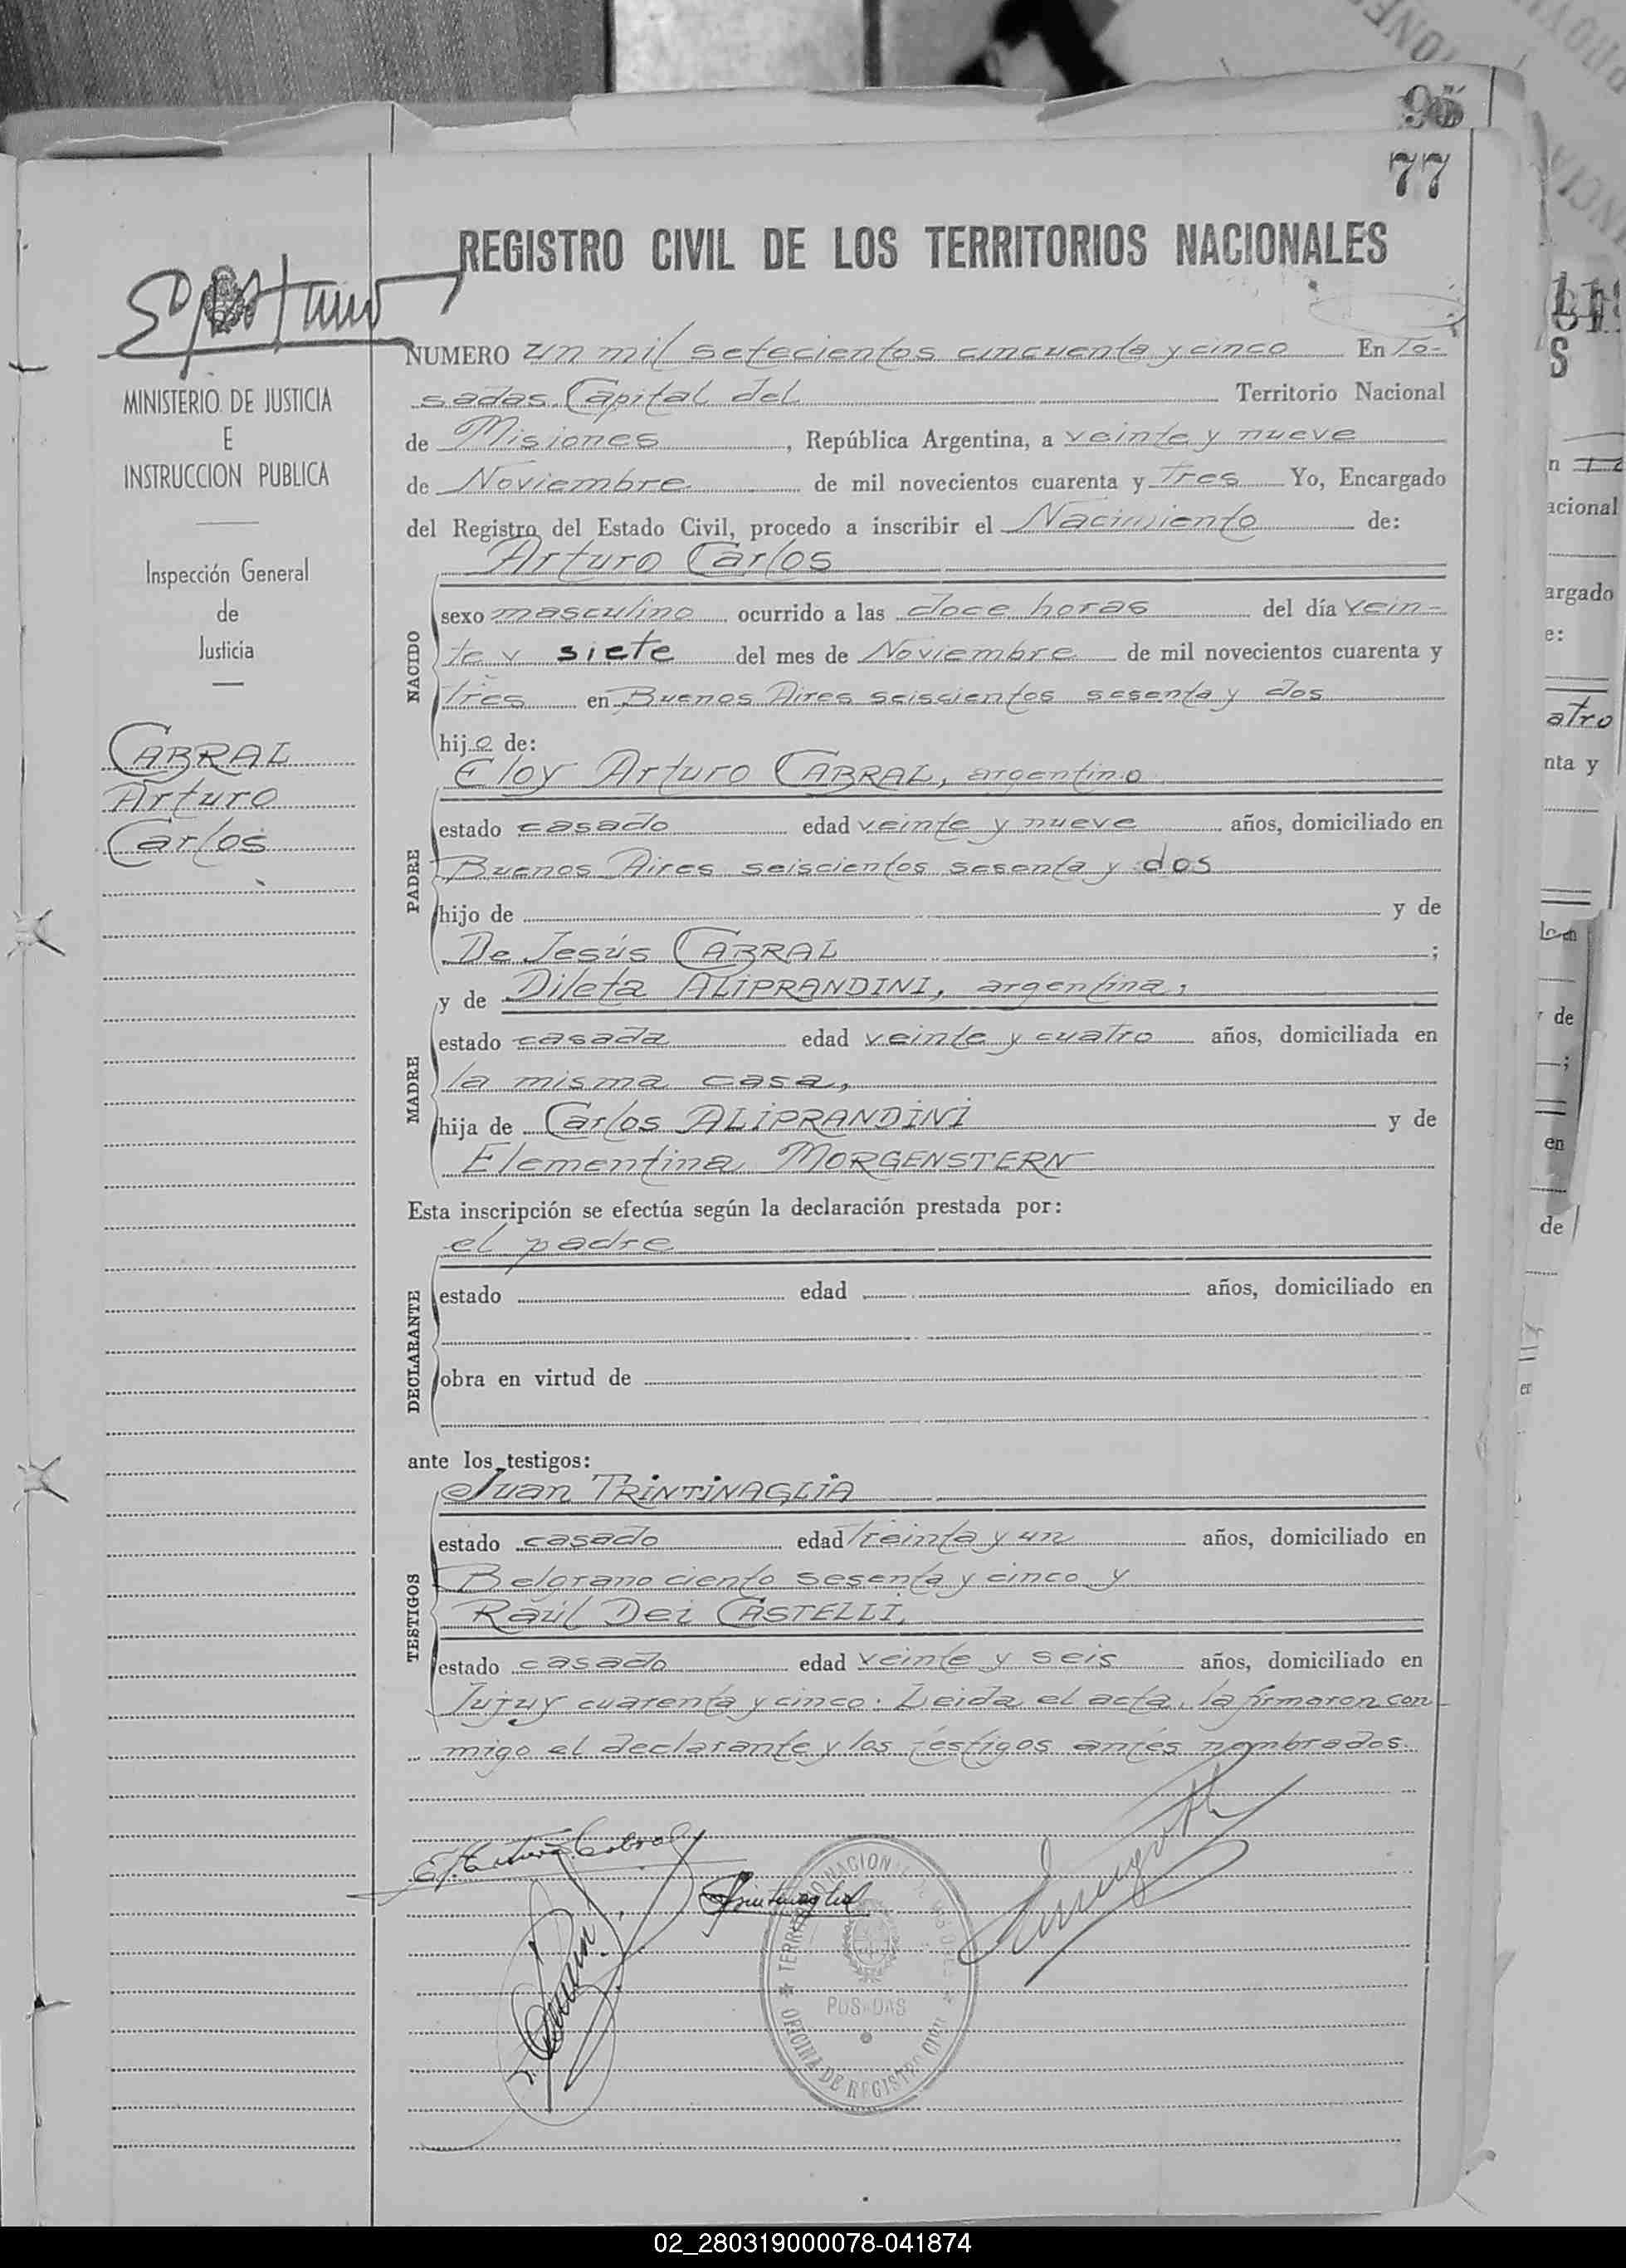 95
77
REGISTRO CIVIL DE LOS TERRITORIOS NACIONALES
MINISTERIO DE JUSTICIA
E
INSTRUCCION PUBLICA
Inspección General
de
Justicia
CABRAL
Arturo
Carlos
NUMERO un mil setecientos cincuenta y cinco En Po-
sadas Capital del Territorio Nacional
de Misiones, República Argentina, a veinte y nueve
de Noviembre de mil novecientos cuarenta y tres Yo, Encargado
del Registro del Estado Civil, procedo a inscribir el Nacimiento de:
Arturo Carlos
NACIDO
sexo masculino ocurrido a las doce horas del día vein-
te y siete del mes de Noviembre de mil novecientos cuarenta y
tres en Buenos Aires seiscientos sesenta y dos
hijo de:
Eloy Arturo CABRAL, argentino
PADRE
estado casado edad veinte y nueve años, domiciliado en
Buenos Aires seiscientos sesenta y dos
hijo de y de
De Jesús CABRAL ;
y de Dileta ALIPRANDINI, argentina,
MADRE
estado casada edad veinte y cuatro años, domiciliada en
la misma casa,
hija de Carlos ALIPRANDINI y de
Elementina MORGENSTERN
Esta inscripción se efectúa según la declaración prestada por:
el padre
DECLARANTE
estado edad años, domiciliado en
obra en virtud de
ante los testigos:
Juan TRINTINAGLIA
TESTIGOS
estado casado edad treinta y un años, domiciliado en
Belgrano ciento sesenta y cinco y
Raúl Dei CASTELLI,
estado casado edad veinte y seis años, domiciliado en
Jujuy cuarenta y cinco. Leida el acta, la firmaron con
migo el declarante y los testigos antes nombrados.
TERRITORIO NACIONAL DE MISIONES
POSADAS
OFICINA DE REGISTRO CIVIL
acional
argado
e:
atro
nta y
de
en
de
02_280319000078-041874